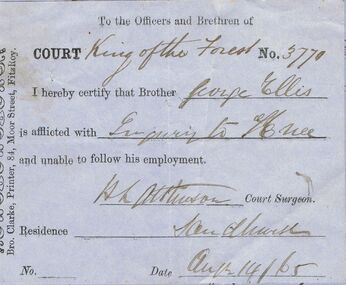 To the Officers and Brethren of
COURT King of the Forest No. 3770
I hereby certify that Brother George Ellis
is afflicted with Injury to Knee
and unable to follow his employment.
H L Atkinson Court Surgeon.
Residence Sandhurst
No. Date Augt 14/65
Bro. Clarke, Printer, 84, Moor Street, Fitzroy.